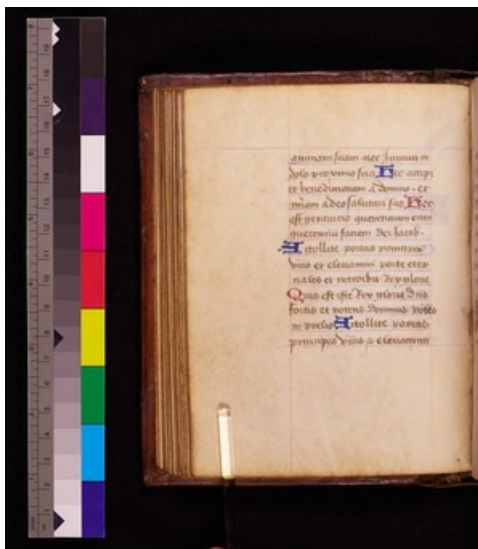 animam suam nec iuravit in
dolo proximo suo Hic accipi
et benedictionem a domino et
misericordiam a deo salutari suo Hec
est generatio querentium eum
querentium faciem dei Jacob
Attollite portas principes
vestras et elevamini porte eter
nales et introibit rex glorie
Quis est iste rex glorie dns
fortis et potens dominus potens
in prelio Attollite portas
principes vestras et elevamini